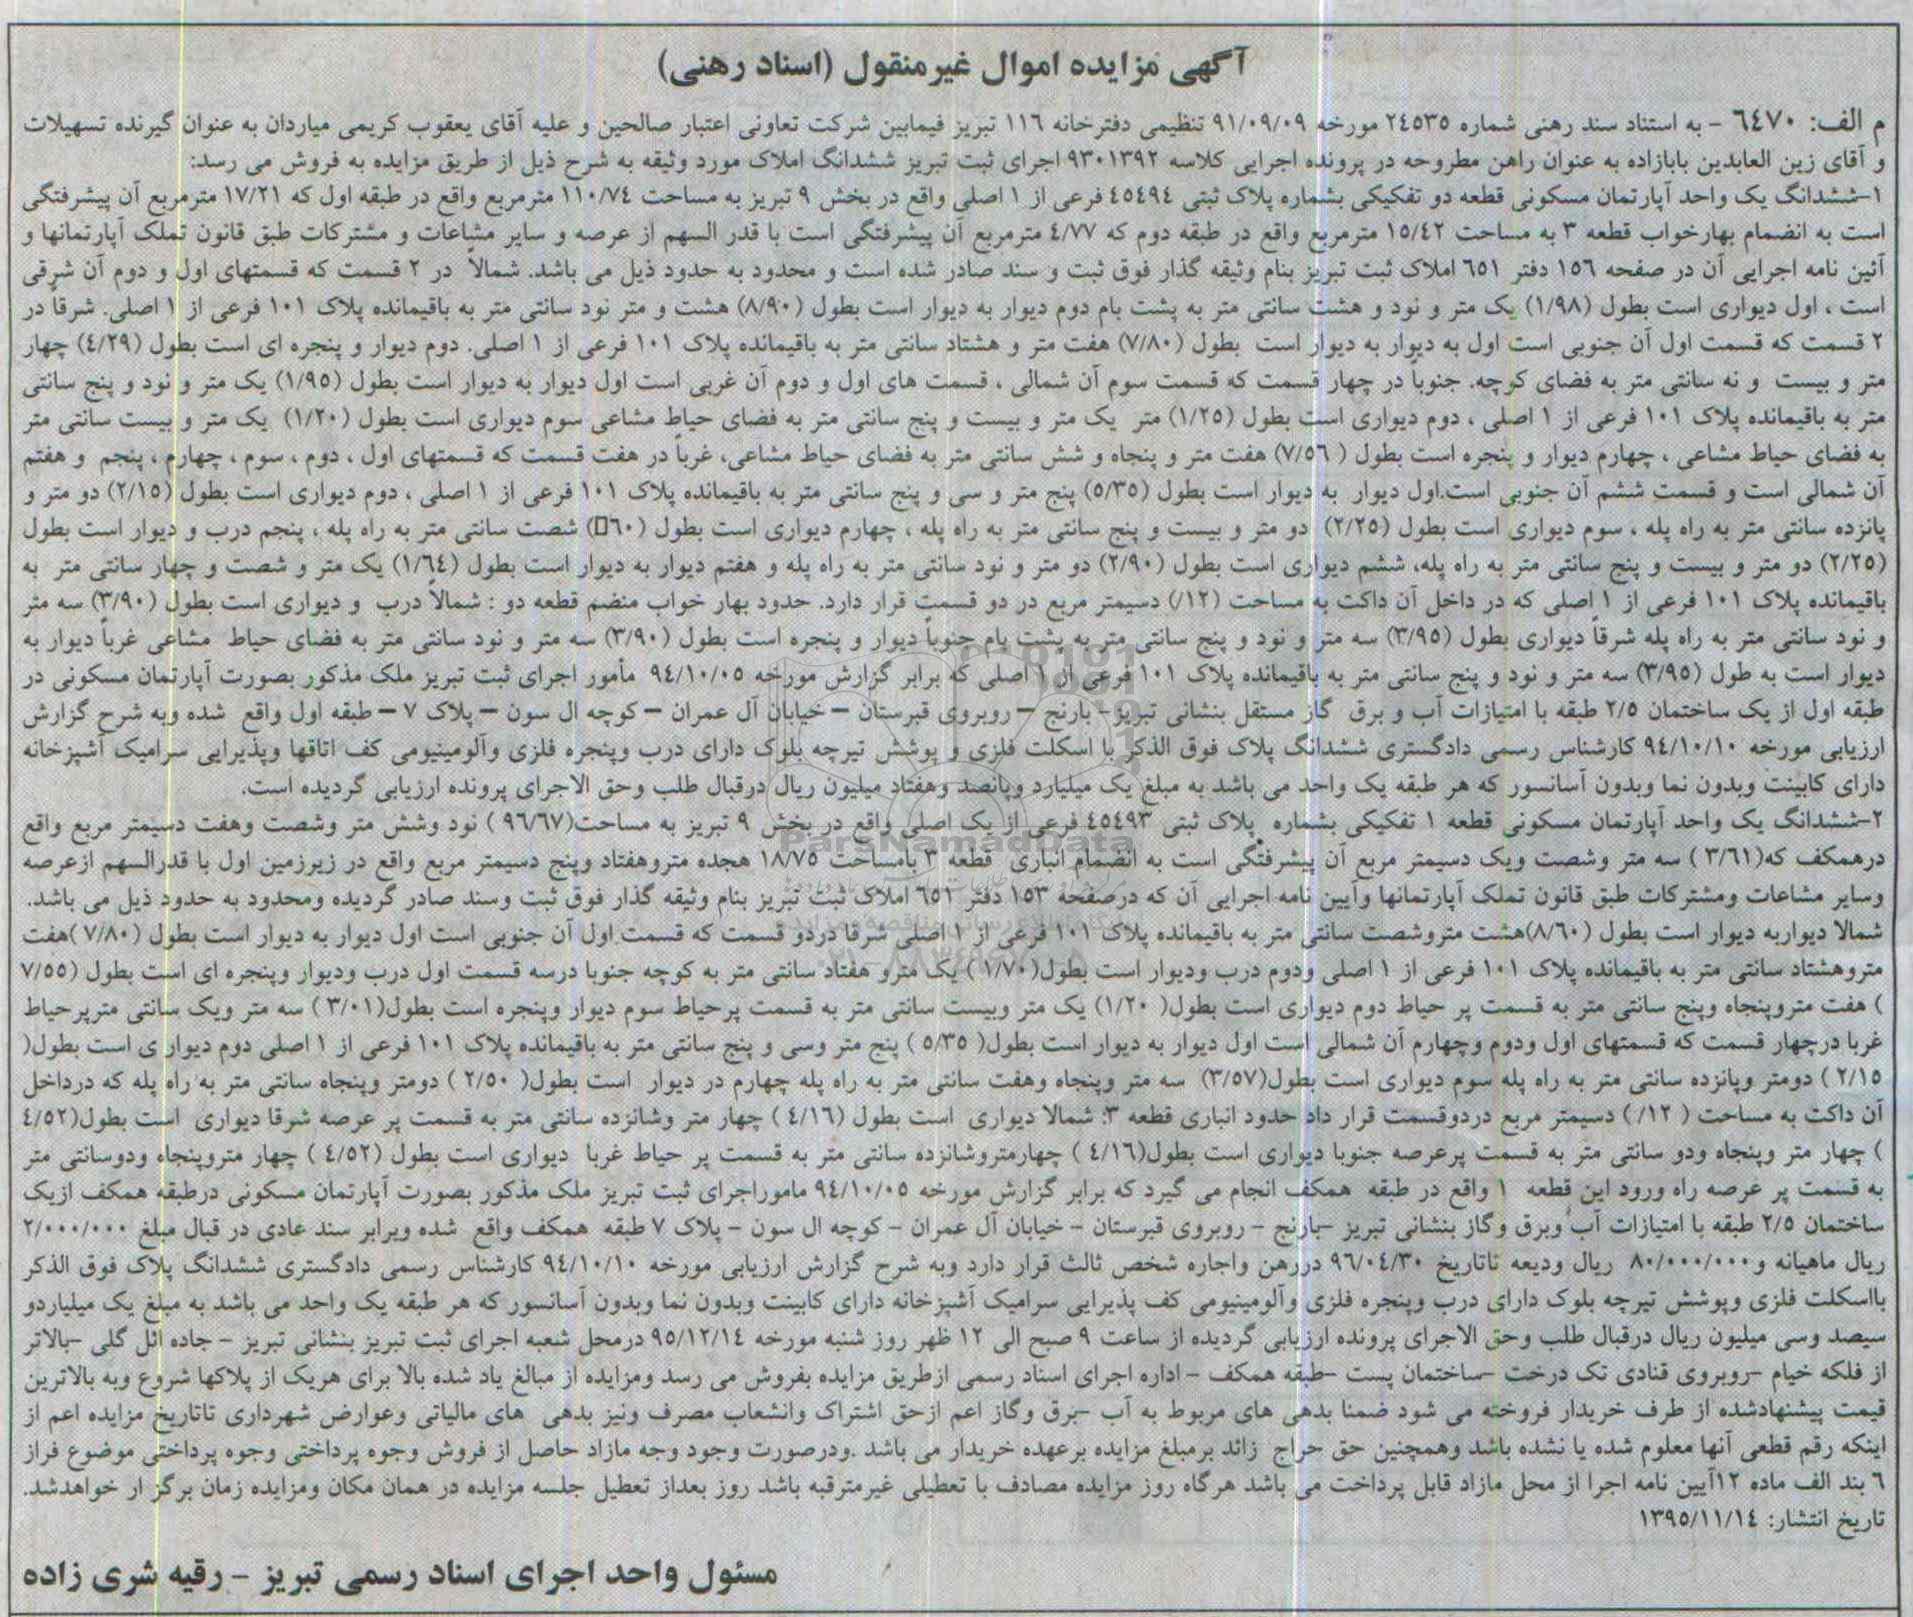 آگهی مزایده اموال غیرمنقول (اسناد رهنی)
م الف: ٦٤٧٠ - به استناد سند رهنی شماره ٢٤٥٣٥ مورخه ٩١/٠٩/٠٩ تنظیمی دفترخانه ١١٦ تبریز فیمابین شرکت تعاونی اعتبار صالحین و علیه آقای یعقوب کریمی میاردان به عنوان گیرنده تسهیلات
و آقای زین العابدین بابازاده به عنوان راهن مطروحه در پرونده اجرایی کلاسه ٩٣٠١٣٩٢ اجرای ثبت تبریز ششدانگ املاک مورد وثیقه به شرح ذیل از طریق مزایده به فروش می رسد:
١-ششدانگ یک واحد آپارتمان مسکونی قطعه دو تفکیکی بشماره پلاک ثبتی ٤٥٤٩٤ فرعی از ١ اصلی واقع در بخش ٩ تبریز به مساحت ١١٠/٧٤ مترمربع واقع در طبقه اول که ١٧/٢١ مترمربع آن پیشرفتگی
است به انضمام بهارخواب قطعه ٣ به مساحت ١٥/٤٢ مترمربع واقع در طبقه دوم که ٤/٧٧ مترمربع آن پیشرفتگی است با قدر السهم از عرصه و سایر مشاعات و مشترکات طبق قانون تملک آپارتمانها و
آئین نامه اجرایی آن در صفحه ١٥٦ دفتر ٦٥١ املاک ثبت تبریز بنام وثیقه گذار فوق ثبت و سند صادر شده است و محدود به حدود ذیل می باشد. شمالاً در ٢ قسمت که قسمتهای اول و دوم آن شرقی
است ، اول دیواری است بطول (١/٩٨) یک متر و نود و هشت سانتی متر به پشت بام دوم دیوار به دیوار است بطول (٨/٩٠) هشت و متر نود سانتی متر به باقیمانده پلاک ١٠١ فرعی از ١ اصلی. شرقاً در
٢ قسمت که قسمت اول آن جنوبی است اول به دیوار به دیوار است بطول (٧/٨٠) هفت متر و هشتاد سانتی متر به باقیمانده پلاک ١٠١ فرعی از ١ اصلی. دوم دیوار و پنجره ای است بطول (٤/٢٩) چهار
متر و بیست و نه سانتی متر به فضای کوچه. جنوباً در چهار قسمت که قسمت سوم آن شمالی ، قسمت های اول و دوم آن غربی است اول دیوار به دیوار است بطول (١/٩٥) یک متر و نود و پنج سانتی
متر به باقیمانده پلاک ١٠١ فرعی از ١ اصلی ، دوم دیواری است بطول (١/٢٥) متر یک متر و بیست و پنج سانتی متر به فضای حیاط مشاعی سوم دیواری است بطول (١/٢٠) یک متر و بیست سانتی متر
به فضای حیاط مشاعی ، چهارم دیوار و پنجره است بطول ( ٧/٥٦) هفت متر و پنجاه و شش سانتی متر به فضای حیاط مشاعی، غرباً در هفت قسمت که قسمتهای اول ، دوم ، سوم ، چهارم ، پنجم و هفتم
آن شمالی است و قسمت ششم آن جنوبی است.اول دیوار به دیوار است بطول (٥/٣٥) پنج متر و سی و پنج سانتی متر به باقیمانده پلاک ١٠١ فرعی از ١ اصلی ، دوم دیواری است بطول (٢/١٥) دو متر و
پانزده سانتی متر به راه پله ، سوم دیواری است بطول (٢/٢٥) دو متر و بیست و پنج سانتی متر به راه پله ، چهارم دیواری است بطول (٦٠▯) شصت سانتی متر به راه پله ، پنجم درب و دیوار است بطول
(٢/٢٥) دو متر و بیست و پنج سانتی متر به راه پله، ششم دیواری است بطول (٢/٩٠) دو متر و نود سانتی متر به راه پله و هفتم دیوار به دیوار است بطول (١/٦٤) یک متر و شصت و چهار سانتی متر به
باقیمانده پلاک ١٠١ فرعی از ١ اصلی که در داخل آن داکت به مساحت (١٢/) دسیمتر مربع در دو قسمت قرار دارد. حدود بهار خواب منضم قطعه دو : شمالاً درب و دیواری است بطول (٣/٩٠) سه متر
و نود سانتی متر به راه پله شرقاً دیواری بطول (٣/٩٥) سه متر و نود و پنج سانتی متر به پشت بام جنوباً دیوار و پنجره است بطول (٣/٩٠) سه متر و نود سانتی متر به فضای حیاط مشاعی غرباً دیوار به
دیوار است به طول (٣/٩٥) سه متر و نود و پنج سانتی متر به باقیمانده پلاک ١٠١ فرعی از ١ اصلی که برابر گزارش مورخه ٩٤/١٠/٠٥ مأمور اجرای ثبت تبریز ملک مذکور بصورت آپارتمان مسکونی در
طبقه اول از یک ساختمان ٢/٥ طبقه با امتیازات آب و برق گاز مستقل بنشانی تبریز- بارنج – روبروی قبرستان – خیابان آل عمران – کوچه ال سون – پلاک ٧ – طبقه اول واقع شده وبه شرح گزارش
ارزیابی مورخه ٩٤/١٠/١٠ کارشناس رسمی دادگستری ششدانگ پلاک فوق الذکر با اسکلت فلزی و پوشش تیرچه بلوک دارای درب وپنجره فلزی وآلومینیومی کف اتاقها وپذیرایی سرامیک آشپزخانه
دارای کابینت وبدون نما وبدون آسانسور که هر طبقه یک واحد می باشد به مبلغ یک میلیارد وپانصد وهفتاد میلیون ریال درقبال طلب وحق الاجرای پرونده ارزیابی گردیده است.
٢-ششدانگ یک واحد آپارتمان مسکونی قطعه ١ تفکیکی بشماره پلاک ثبتی ٤٥٤٩٣ فرعی از یک اصلی واقع در بخش ٩ تبریز به مساحت(٩٦/٦٧ ) نود وشش متر وشصت وهفت دسیمتر مربع واقع
درهمکف که(٣/٦١ ) سه متر وشصت ویک دسیمتر مربع آن پیشرفتگی است به انضمام انباری قطعه ٣ بامساحت ١٨/٧٥ هجده متروهفتاد وپنج دسیمتر مربع واقع در زیرزمین اول با قدرالسهم ازعرصه
وسایر مشاعات ومشترکات طبق قانون تملک آپارتمانها وآیین نامه اجرایی آن که درصفحه ١٥٣ دفتر ٦٥١ املاک ثبت تبریز بنام وثیقه گذار فوق ثبت وسند صادر گردیده ومحدود به حدود ذیل می باشد.
شمالا دیواربه دیوار است بطول (٨/٦٠)هشت متروشصت سانتی متر به باقیمانده پلاک ١٠١ فرعی از ١ اصلی شرقا دردو قسمت که قسمت اول آن جنوبی است اول دیوار به دیوار است بطول (٧/٨٠ )هفت
متروهشتاد سانتی متر به باقیمانده پلاک ١٠١ فرعی از ١ اصلی ودوم درب ودیوار است بطول(١/٧٠ ) یک مترو هفتاد سانتی متر به کوچه جنوبا درسه قسمت اول درب ودیوار وپنجره ای است بطول (٧/٥٥
) هفت متروپنجاه وپنج سانتی متر به قسمت پر حیاط دوم دیواری است بطول( ١/٢٠) یک متر وبیست سانتی متر به قسمت پرحیاط سوم دیوار وپنجره است بطول(٣/٠١ ) سه متر ویک سانتی مترپرحیاط
غربا درچهار قسمت که قسمتهای اول ودوم وچهارم آن شمالی است اول دیوار به دیوار است بطول( ٥/٣٥ ) پنج متر وسی و پنج سانتی متر به باقیمانده پلاک ١٠١ فرعی از ١ اصلی دوم دیوار ی است بطول(
٢/١٥ ) دومتر وپانزده سانتی متر به راه پله سوم دیواری است بطول(٣/٥٧) سه متر وپنجاه وهفت سانتی متر به راه پله چهارم در دیوار است بطول( ٢/٥٠ ) دومتر وپنجاه سانتی متر به راه پله که درداخل
آن داکت به مساحت ( ١٢/ ) دسیمتر مربع دردوقسمت قرار داد حدود انباری قطعه ٣: شمالا دیواری است بطول (٤/١٦ ) چهار متر وشانزده سانتی متر به قسمت پر عرصه شرقا دیواری است بطول(٤/٥٢
) چهار متر وپنجاه ودو سانتی متر به قسمت پرعرصه جنوبا دیواری است بطول(٤/١٦ ) چهارمتروشانزده سانتی متر به قسمت پر حیاط غربا دیواری است بطول (٤/٥٢ ) چهار متروپنجاه ودوسانتی متر
به قسمت پر عرصه راه ورود این قطعه ١ واقع در طبقه همکف انجام می گیرد که برابر گزارش مورخه ٩٤/١٠/٠٥ ماموراجرای ثبت تبریز ملک مذکور بصورت آپارتمان مسکونی درطبقه همکف ازیک
ساختمان ٢/٥ طبقه با امتیازات آب وبرق وگاز بنشانی تبریز –بارنج – روبروی قبرستان – خیابان آل عمران – کوچه ال سون – پلاک ٧ طبقه همکف واقع شده وبرابر سند عادی در قبال مبلغ ٢/٠٠٠/٠٠٠
ریال ماهیانه و٨٠/٠٠٠/٠٠٠ ریال ودیعه تاتاریخ ٩٦/٠٤/٣٠ دررهن واجاره شخص ثالث قرار دارد وبه شرح گزارش ارزیابی مورخه ٩٤/١٠/١٠ کارشناس رسمی دادگستری ششدانگ پلاک فوق الذکر
بااسکلت فلزی وپوشش تیرچه بلوک دارای درب وپنجره فلزی وآلومینیومی کف پذیرایی سرامیک آشپزخانه دارای کابینت وبدون نما وبدون آسانسور که هر طبقه یک واحد می باشد به مبلغ یک میلیاردو
سیصد وسی میلیون ریال درقبال طلب وحق الاجرای پرونده ارزیابی گردیده از ساعت ٩ صبح الی ١٢ ظهر روز شنبه مورخه ٩٥/١٢/١٤ درمحل شعبه اجرای ثبت تبریز بنشانی تبریز – جاده ائل گلی –بالاتر
از فلکه خیام –روبروی قنادی تک درخت –ساختمان پست –طبقه همکف – اداره اجرای اسناد رسمی ازطریق مزایده بفروش می رسد ومزایده از مبالغ یاد شده بالا برای هریک از پلاکها شروع وبه بالاترین
قیمت پیشنهادشده از طرف خریدار فروخته می شود ضمنا بدهی های مربوط به آب –برق وگاز اعم ازحق اشتراک وانشعاب مصرف ونیز بدهی های مالیاتی وعوارض شهرداری تاتاریخ مزایده اعم از
اینکه رقم قطعی آنها معلوم شده یا نشده باشد وهمچنین حق حراج زائد برمبلغ مزایده برعهده خریدار می باشد .ودرصورت وجود وجه مازاد حاصل از فروش وجوه پرداختی وجوه پرداختی موضوع فراز
٦ بند الف ماده ١٢آیین نامه اجرا از محل مازاد قابل پرداخت می باشد هرگاه روز مزایده مصادف با تعطیلی غیرمترقبه باشد روز بعداز تعطیل جلسه مزایده در همان مکان ومزایده زمان برگز ار خواهدشد.
تاریخ انتشار: ١٣٩٥/١١/١٤
مسئول واحد اجرای اسناد رسمی تبریز – رقیه شری زاده
ParsNamadData